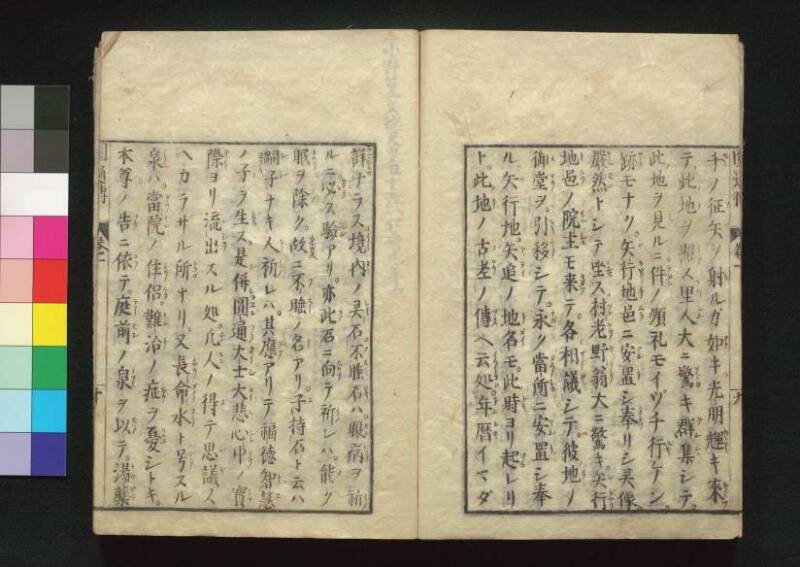 千ノ征矢ヲ射ルガ如キ光明赫キ来
テ此地ヲ照ス里人大ニ驚キ群集シテ
此地ヲ見ルニ件ノ順礼モイヅチ行ケン
跡モナク矢行地邑ニ安置シ奉リシ灵像
嚴然トシテ坐ス村老野翁大ニ驚キ矢行
地邑ノ院主モ来テ各相議シテ彼地ノ
御堂ヲ引移シテ永ク當所ニ安置シ奉
ル矢行地矢追ノ地名モ此時ヨリ起レリ
ト此地ノ古老ノ傳ヘ云処年暦イマダ
九
詳ナラス境内ノ灵石不睡石ハ眼病ヲ祈
ルニ必ス驗アリ亦此石ニ向テ祈レハ能ク
眠ヲ除ク故ニ不睡ノ名アリ子持石ト云ハ
嗣子ナキ人祈レハ其應アリテ福徳智慧
ノ子ヲ生ス是併圓通大士大悲心中ノ實
際ヨリ流出スル処凡人ノ得テ思議ス
ヘカラサル所ナリ又長命水ト号スル
泉ハ當院ノ住侶難治ノ症ヲ憂シトキ
本尊ノ告ニ依テ庭前ノ泉ヲ以テ湯藥
十